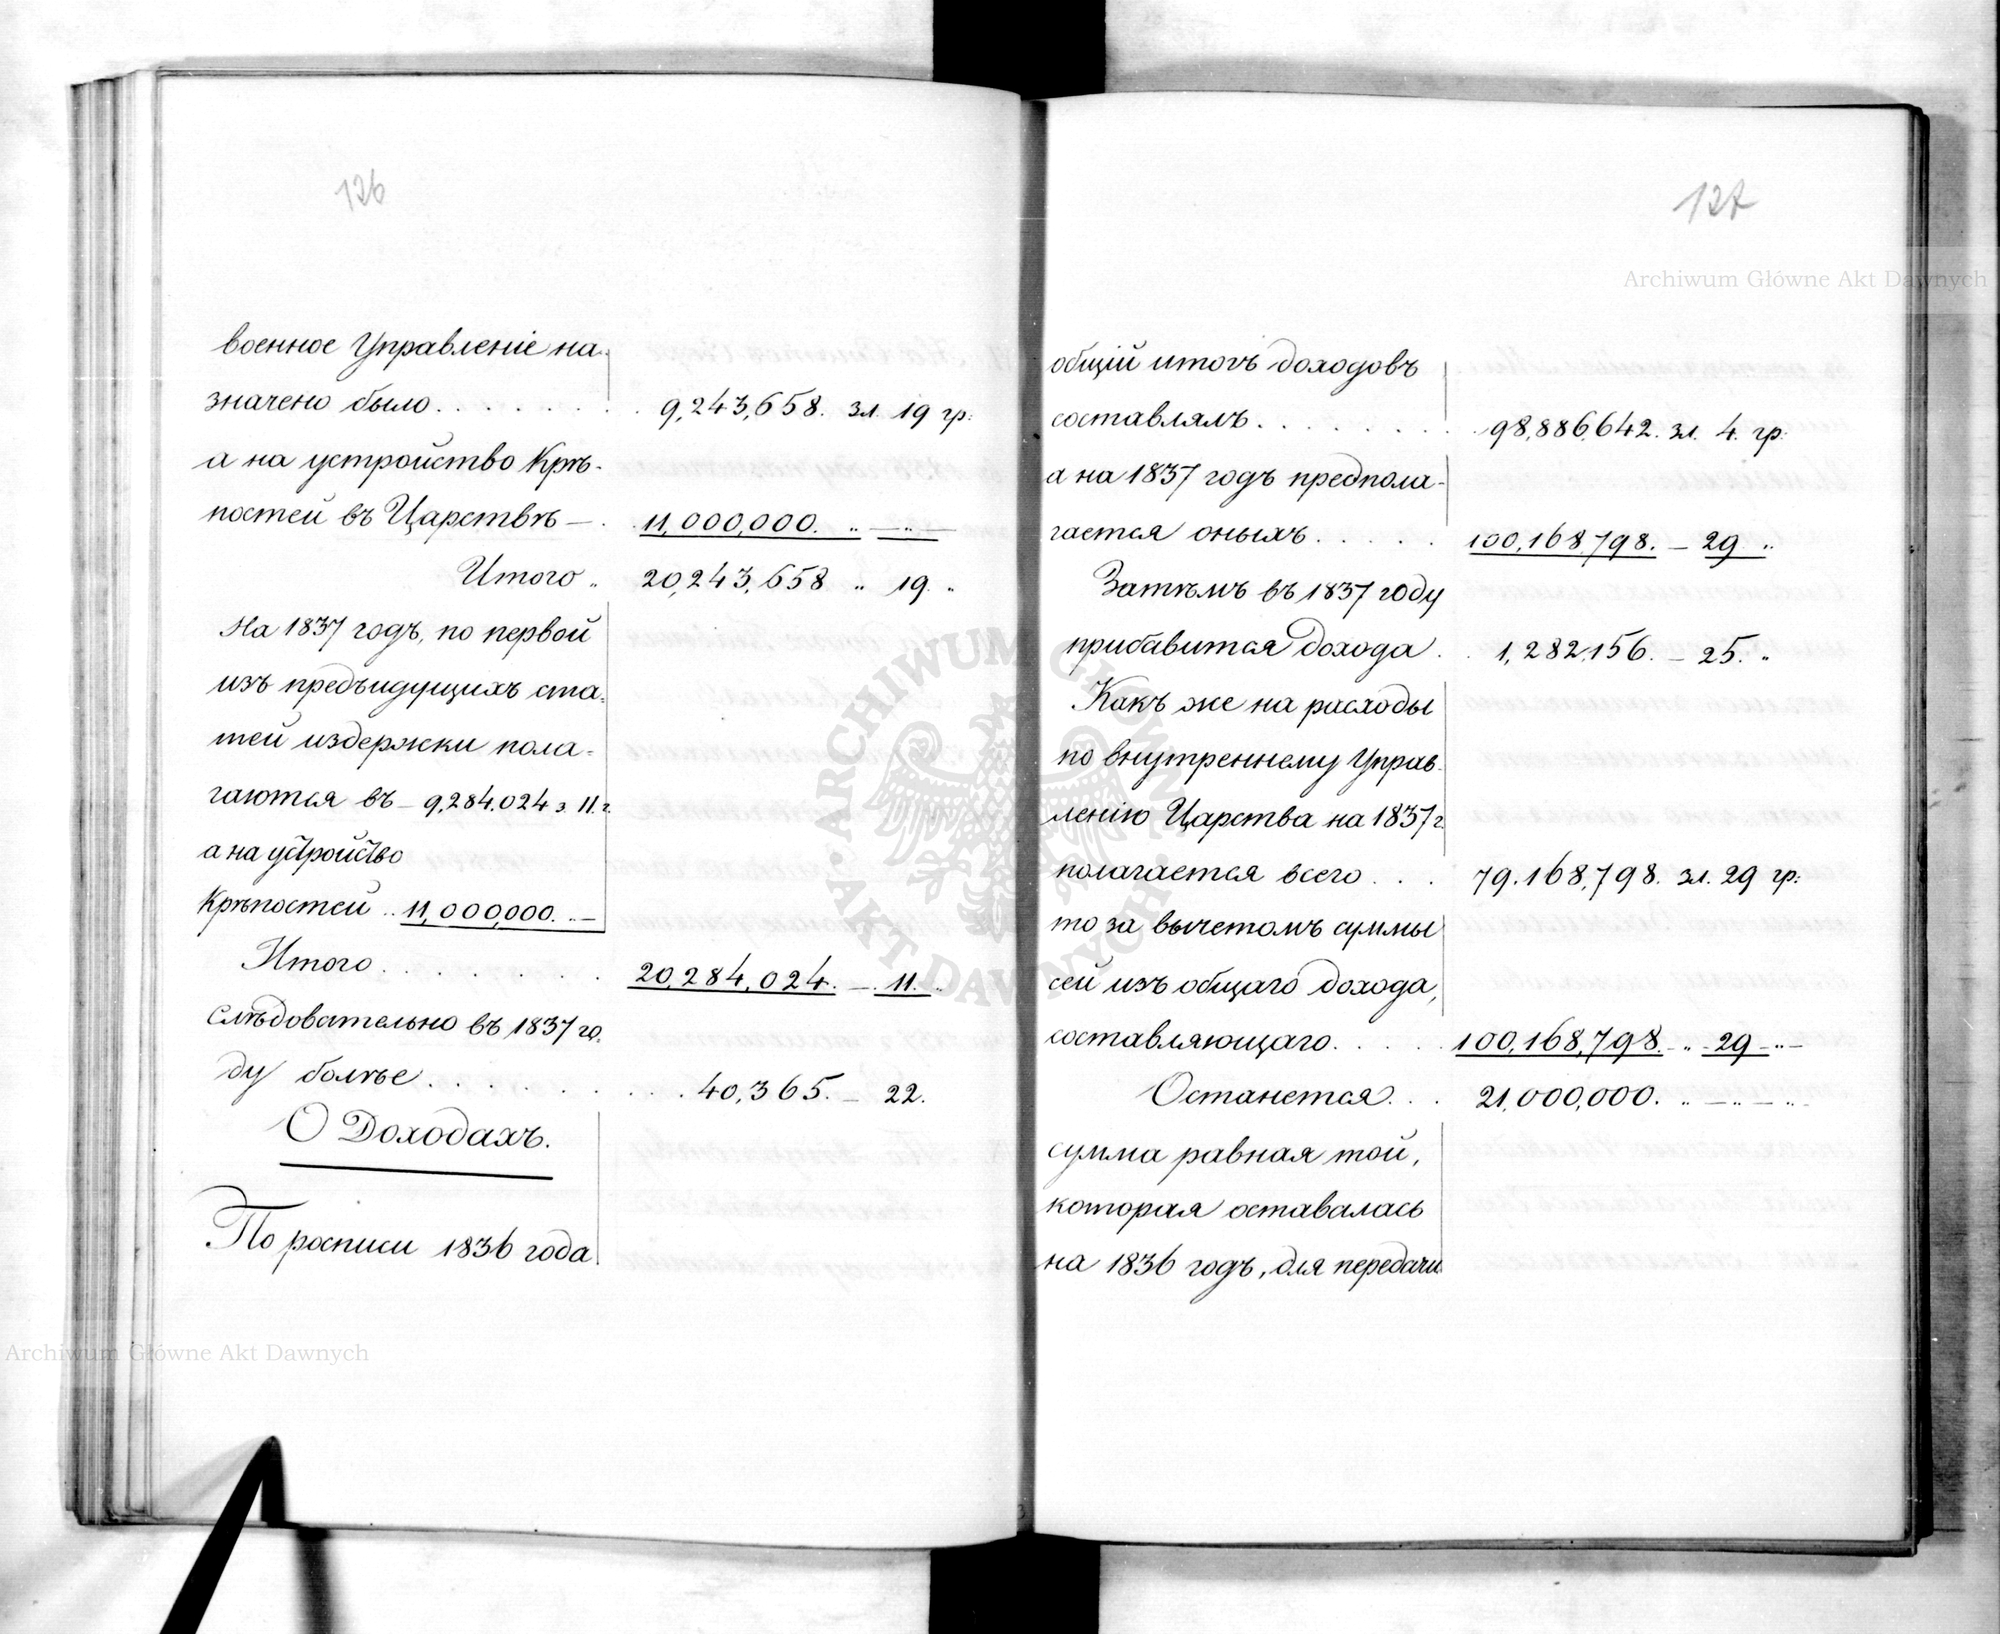 126
военное Управленіе на-
значено было . . . . . . . . 9,243,658. зл. 19 гр:
а на устройство Крѣ-
постей въ Царствѣ — . 11,000,000. „ — „ —
Итого „ 20,243,658 „ 19. „
На 1837 годъ, по первой
изъ предъидущихъ ста-
тей издержки пола-
гаются въ — 9,284,024 з. 11. г.
а на устройство
Крѣпостей „ 11,000,000. „ —
Итого . . . . . . . . 20,284,024. — 11. „
слѣдовательно въ 1837 го-
ду болѣе . . . . . . . . 40,365. — 22.
О Доходахъ.
По росписи 1836 года
127
общій итогъ доходовъ
составлялъ . . . . . . . 98,886,642. зл. 4. гр:
а на 1837 годъ предпола-
гается оныхъ . . . . . 100,168,798. — 29 „
Затѣмъ въ 1837 году
прибавится дохода . . 1,282,156. — 25. „
Какъ же на расходы
по внутреннему Управ-
ленію Царства на 1837 г.
полагается всего . . . 79,168,798. зл. 29 гр:
то за вычетомъ суммы
сей изъ общаго дохода,
составляющаго . . . . 100,168,798. — „ — 29 — „ —
Останется . . . 21,000,000. „ — „ — „
сумма равная той,
которая оставалась
на 1836 годъ, для передачи
Archiwum Główne Akt Dawnych
Archiwum Główne Akt Dawnych
· ARCHIWUM GŁÓWNE · AKT DAWNYCH